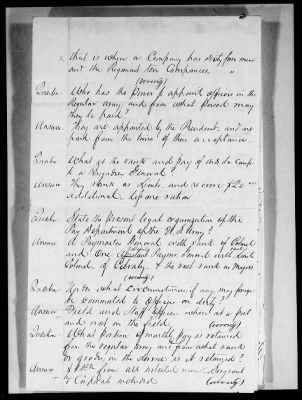 that is when a Company has sixty four men
and the Regiment ten Companies. "
(wrong)
Question Who has the power to appoint officers in the
Regular Army; and from what period may
they be paid?
Answer They are appointed by the President and are
paid from the time of their acceptance
Question What is the rank and pay of aids de Camp
to a Brigadier General?
Answer They rank as Lieuts. and receive $20
additional less one ration
Question State the present legal organization of the
Pay Department of the U.S. Army?
Answer A Paymaster General with rank of Colonel
and One Paymr. General with Lieut.
Colonel of Cavalry & the rest rank as Majors.
(wrong)
Question Under what circumstances, if any, may forage
be commuted to officers on duty?
Answer Field and Staff officers when at a post
and not in the field. (wrong)
Question What portion of monthly pay is retained
from the regular Army and from what rank
or grade, in the service is it retained?
Answer from all enlisted men Sergeant
& Corporal included (wrong)